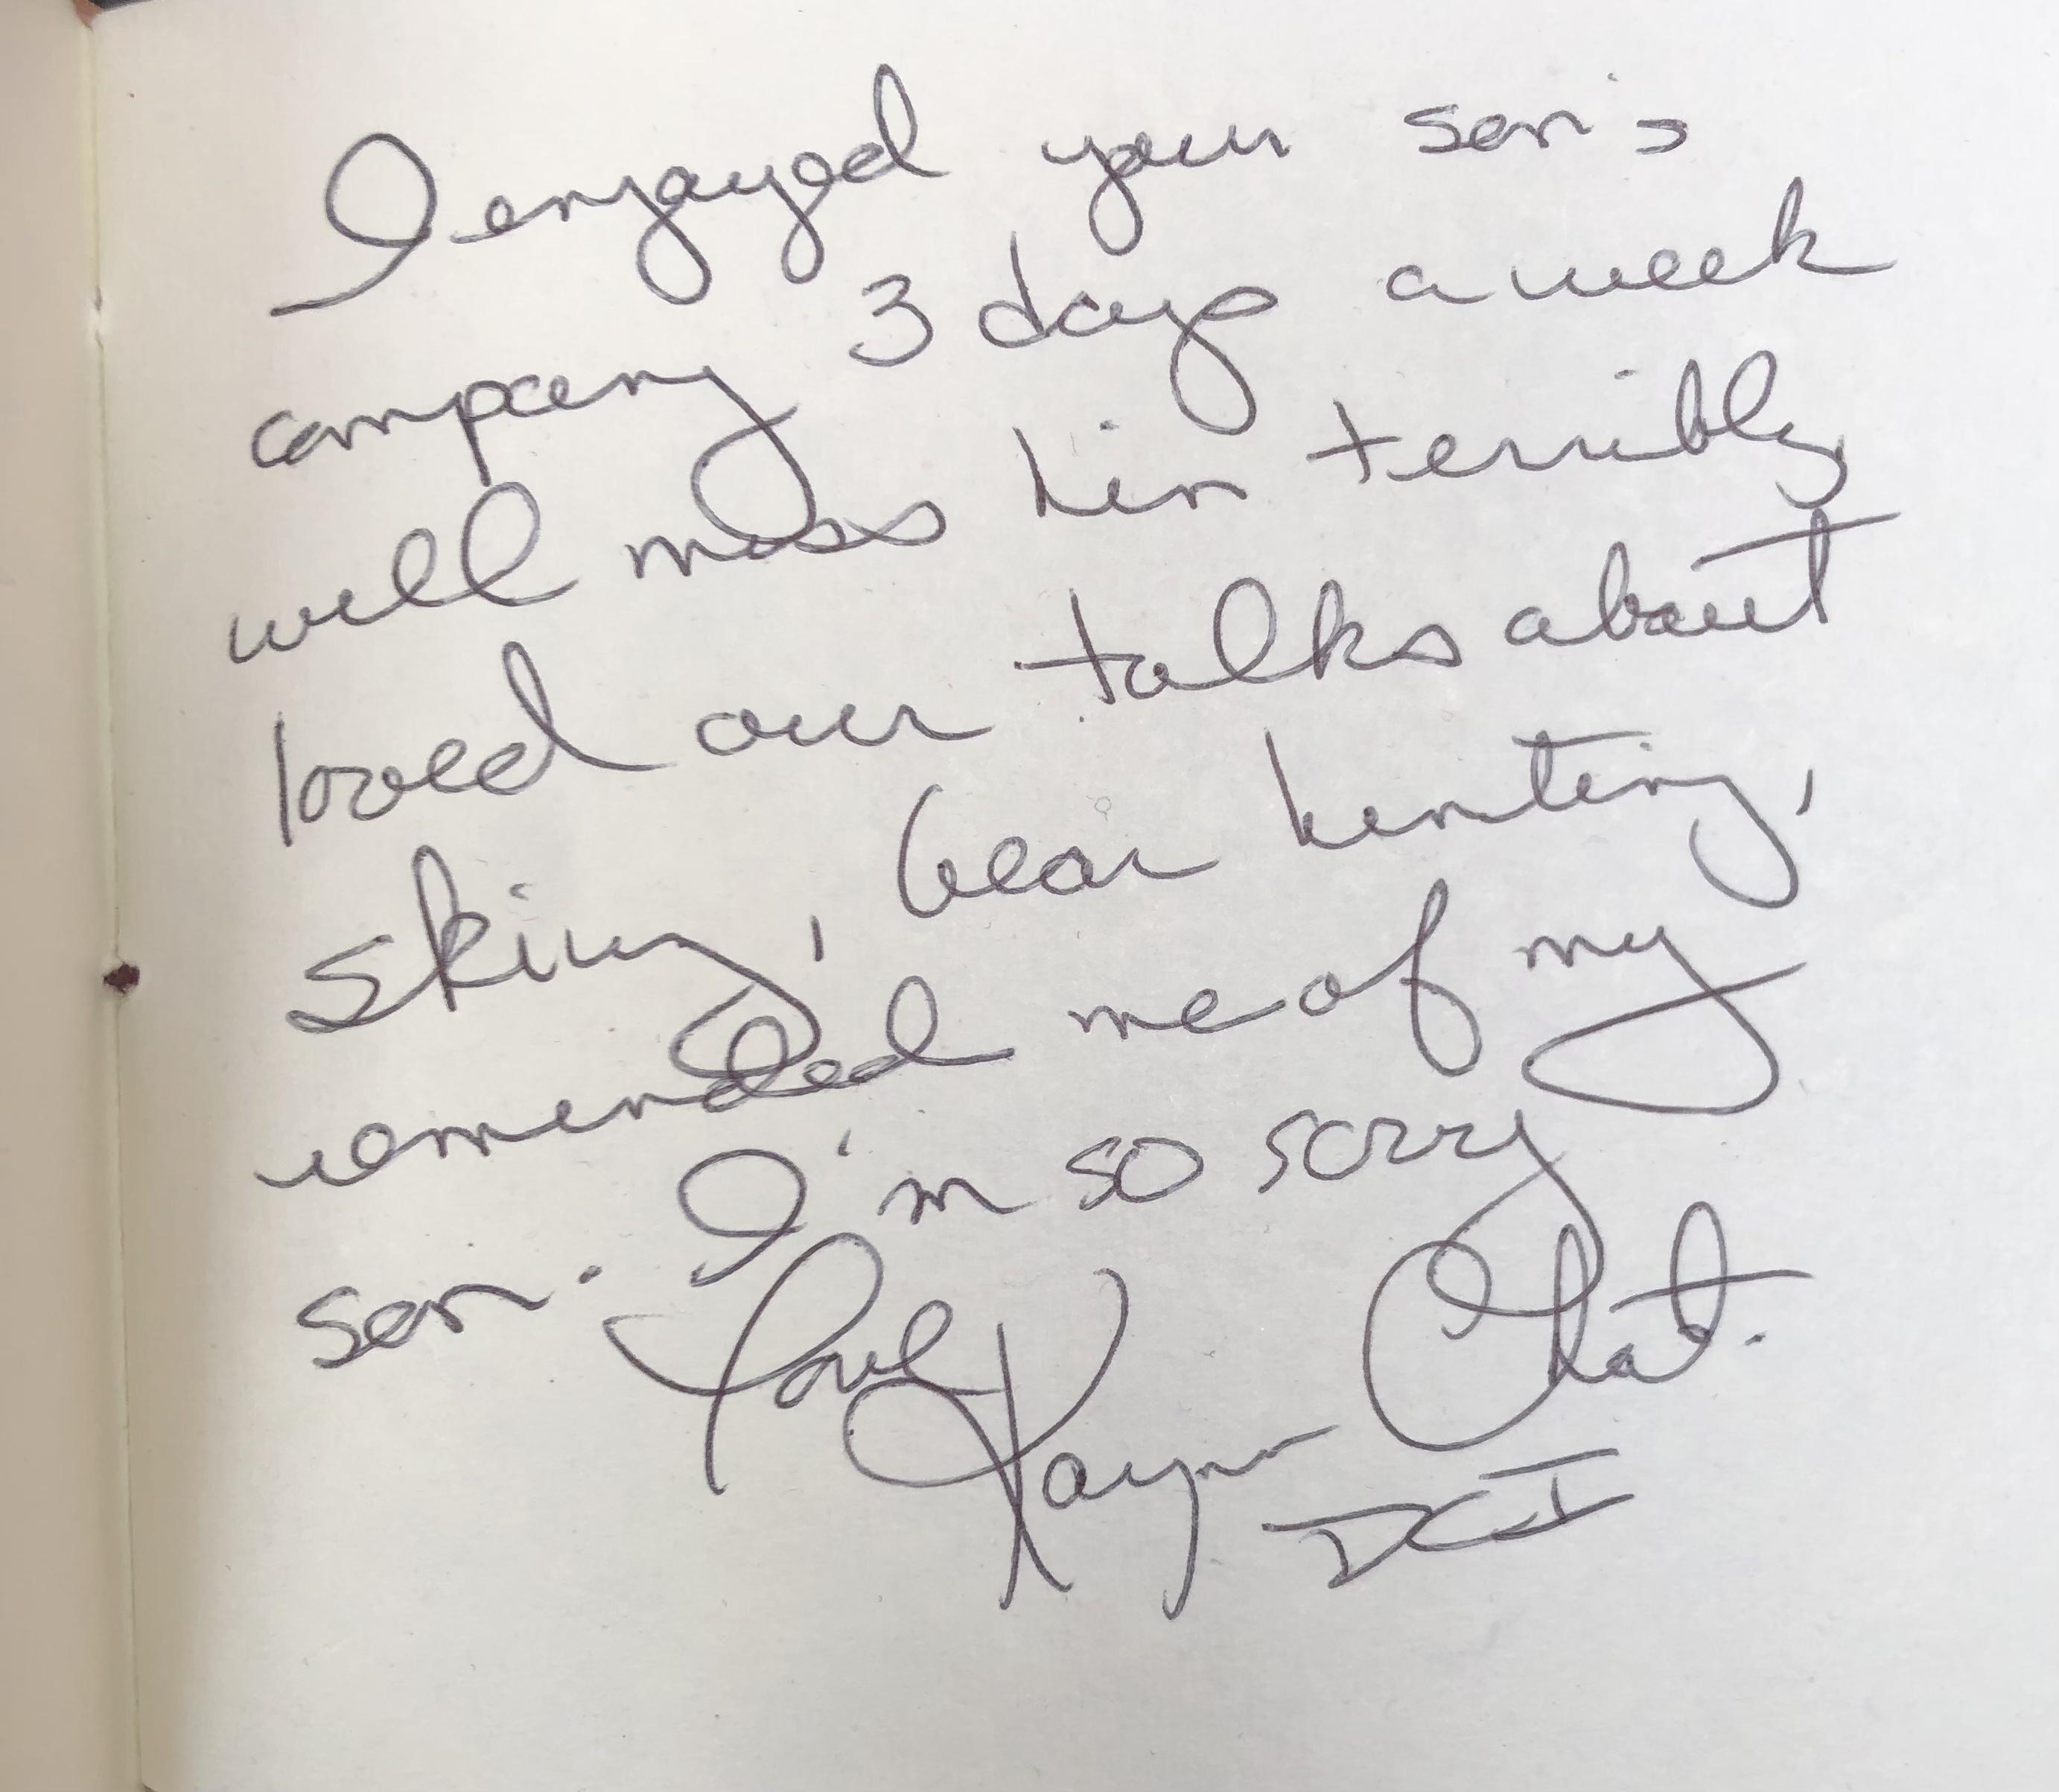 I enjoyed your son's
company 3 days a week
will miss him terribly
loved our talks about
skiing, bear hunting,
reminded me of my
son. I'm so sorry
Love
Chat.
DCI